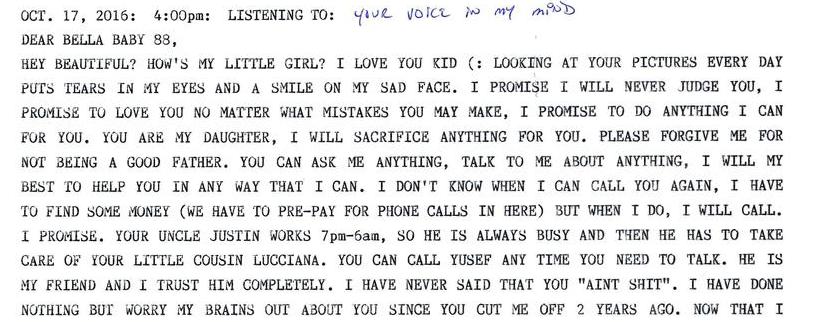 OCT. 17, 2016: 4:00pm: LISTENING TO: YOUR VOICE IN MY MIND
DEAR BELLA BABY 88,
HEY BEAUTIFUL? HOW'S MY LITTLE GIRL? I LOVE YOU KID (: LOOKING AT YOUR PICTURES EVERY DAY
PUTS TEARS IN MY EYES AND A SMILE ON MY SAD FACE. I PROMISE I WILL NEVER JUDGE YOU, I
PROMISE TO LOVE YOU NO MATTER WHAT MISTAKES YOU MAY MAKE, I PROMISE TO DO ANYTHING I CAN
FOR YOU. YOU ARE MY DAUGHTER, I WILL SACRIFICE ANYTHING FOR YOU. PLEASE FORGIVE ME FOR
NOT BEING A GOOD FATHER. YOU CAN ASK ME ANYTHING, TALK TO ME ABOUT ANYTHING, I WILL MY
BEST TO HELP YOU IN ANY WAY THAT I CAN. I DON'T KNOW WHEN I CAN CALL YOU AGAIN, I HAVE
TO FIND SOME MONEY (WE HAVE TO PRE-PAY FOR PHONE CALLS IN HERE) BUT WHEN I DO, I WILL CALL.
I PROMISE. YOUR UNCLE JUSTIN WORKS 7pm-6am, SO HE IS ALWAYS BUSY AND THEN HE HAS TO TAKE
CARE OF YOUR LITTLE COUSIN LUCCIANA. YOU CAN CALL YUSEF ANY TIME YOU NEED TO TALK. HE IS
MY FRIEND AND I TRUST HIM COMPLETELY. I HAVE NEVER SAID THAT YOU "AINT SHIT". I HAVE DONE
NOTHING BUT WORRY MY BRAINS OUT ABOUT YOU SINCE YOU CUT ME OFF 2 YEARS AGO. NOW THAT I